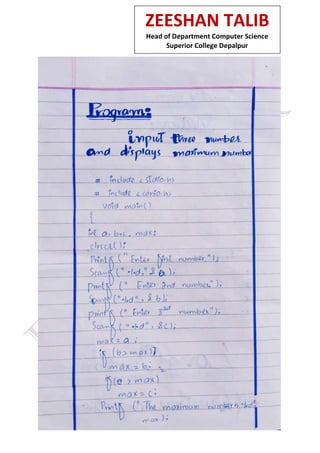 ZEESHAN TALIB
Head of Department Computer Science
Superior College Depalpur
Program:
input three number
and displays maximum number
# include < stdio.h>
# include < conio.h>
void main()
{
int a, b, c, max;
clrscr();
Printf ("Enter first number");
Scanf ("%d", & a);
printf (" Enter 2nd number");
Scanf ("%d", & b);
printf (" Enter 3rd number");
Scanf ("%d", &c);
max = a ;
if (b > max)
max = b;
if (c > max)
max = c;
Printf (" The maximum number is %d"
max);